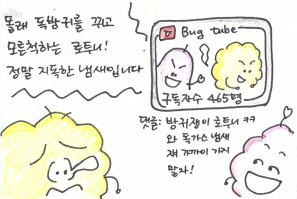 몰래 독방귀를 뀌고
모른척하는 로투니!
정말 지독한 냄새입니다
Bug tube
구독자수 465명
댓글: 방귀쟁이 로투니 ㅋㅋ
와 독가스 냄새
쟤 가까이 가지
말자!